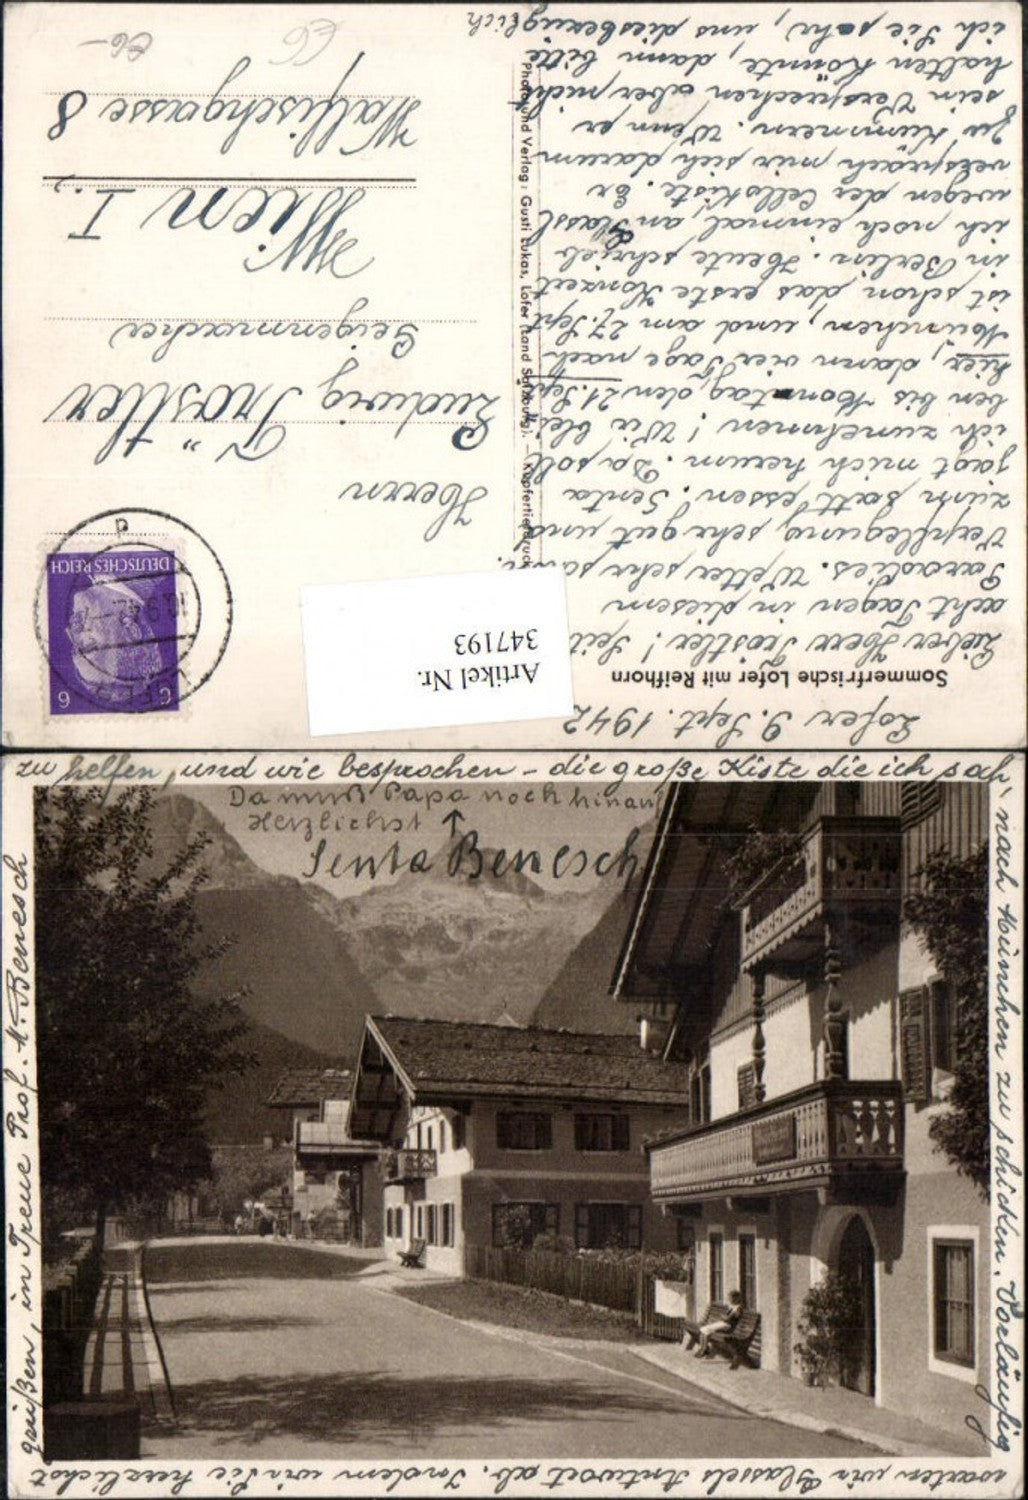 Lofer 9. Sept. 1942
Sommerfrische Lofer mit Reifhorn
Lieber Herr Tröstler! Seit
acht Tagen in diesem
Paradies. Wetter sehr schön.
Verpflegung sehr gut und
zum satt essen. Senta
jagt mich herum. Da soll
ich zunehmen! Wir blei-
ben bis Montag, den 21. Sept.
hier, dann vier Tage nach
München, und am 27. Sept.
ist schon das erste Konzert
in Berlin. Heute schrieb
ich noch einmal an Glassl
wegen der Cellokiste. Er
versprach mir sich darum
zu kümmern. Wenn er
sein Versprechen aber nicht
halten könnte, dann bitte
ich Sie sehr, uns diesbezüglich
Photo und Verlag: Gusti Lukas, Lofer (Land Salzburg). – Kupfertiefdruck
DEUTSCHES REICH
6
Artikel Nr.
347193
Herrn
Ludwig Tröstler
Geigenmacher
Wien I.,
Walfischgasse 8
E6
E6-
zu helfen, und wie besprochen – die große Kiste die ich sah,
nach München zu schicken. Vorläufig
warten wir Glassels Antwort ab. Indem wir Sie herzlichst
grüßen, in Treue Prof. H. Benesch
Da muß Papa noch hinauf
Herzlichst ↑
Senta Benesch